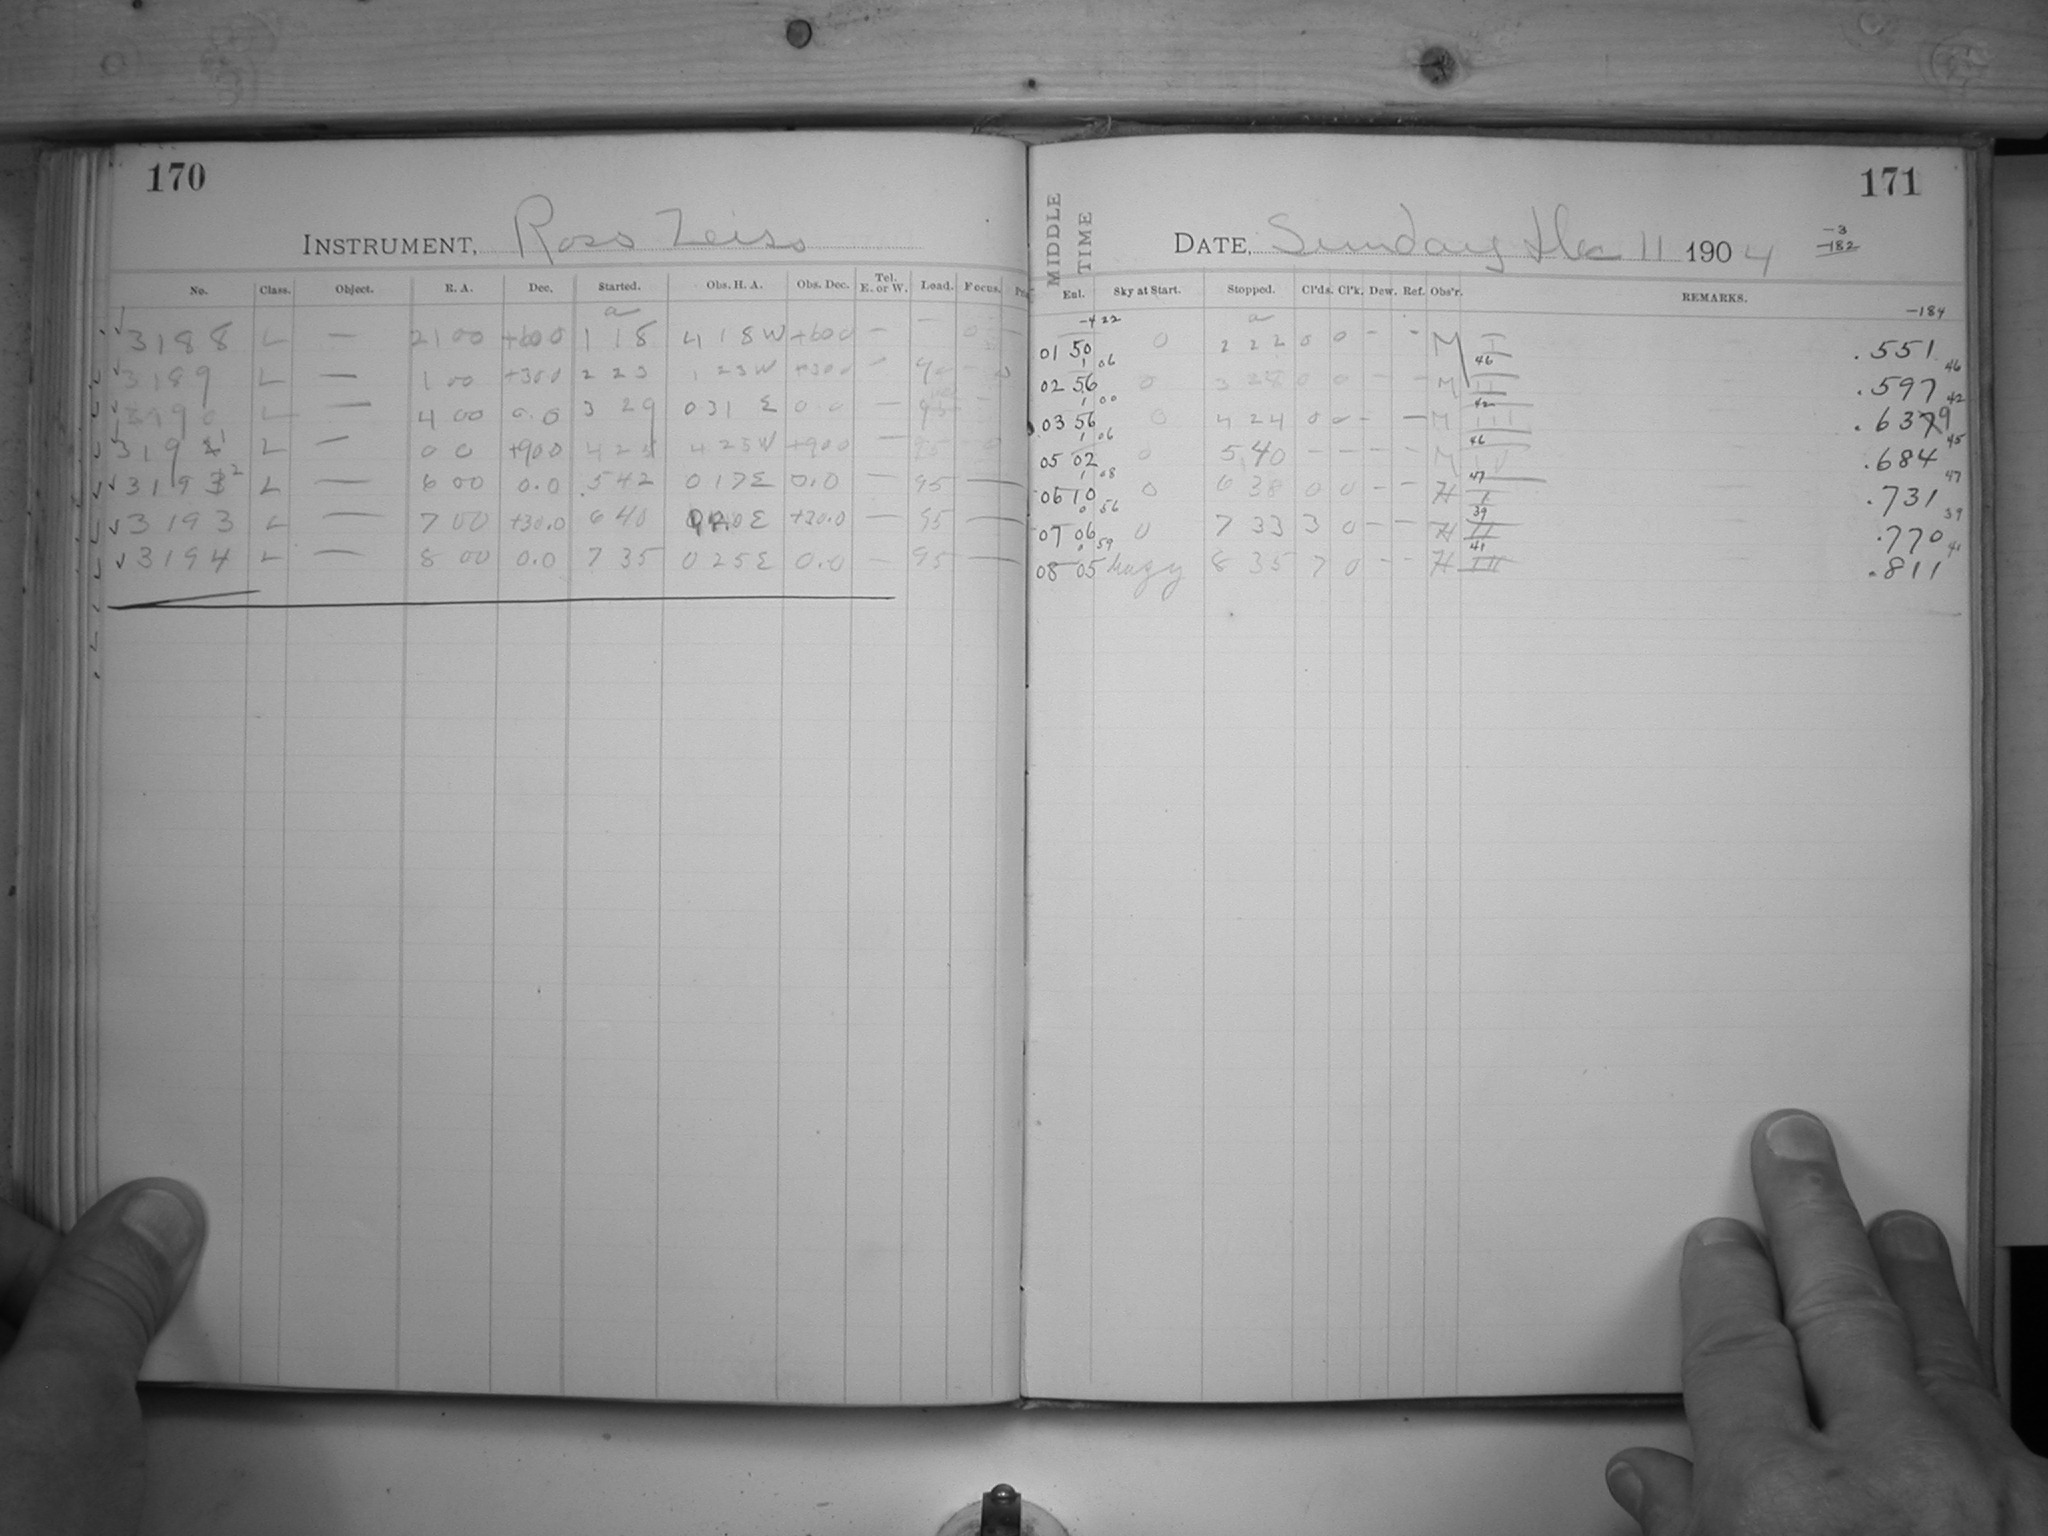 170
INSTRUMENT, Ross Zeiss
No. Class. Object. R. A. Dec. Started. Obs. H. A. Obs. Dec. Tel. E. or W. Load. Focus.
a
3188 L — 21 00 +60 0 1 18 4 18 W +60 0 —
3189 L — 1 00 +30 0 2 23 1 23 W +30 0 —
3190 L — 4 00 0.0 3 29 0 31 E 0.0 — 95
3191 L — 0 0 +90 0 4 25 4 25 W +90 0 — 95
3192 L — 6 00 0.0 5 42 0 17 E 0.0 — 95 —
3193 L — 7 00 +30.0 6 40 0 20 E +30.0 — 95 —
3194 L — 8 00 0.0 7 35 0 25 E 0.0 — 95 —
171
MIDDLE TIME
DATE, Sunday Dec 11 1904
-3
-182
Enl. Sky at Start. Stopped. Cl'ds. Cl'k. Dew. Ref. Obs'r. REMARKS.
-4 22 a -184
01 50 0 2 22 0 0 - - M I .551
1 06 46 46
02 56 0 3 28 0 0 - - M II .597
1 00 42 42
03 56 0 4 24 0 0 - - M III .6379
1 06 46 45
05 02 0 5 40 - - - - M .684
1 08 47 47
06 10 0 6 38 0 0 - - H I .731
0 56 39 39
07 06 0 7 33 3 0 - - H II .770
0 59 41 41
08 05 Hazy 8 35 7 0 - - H III .811